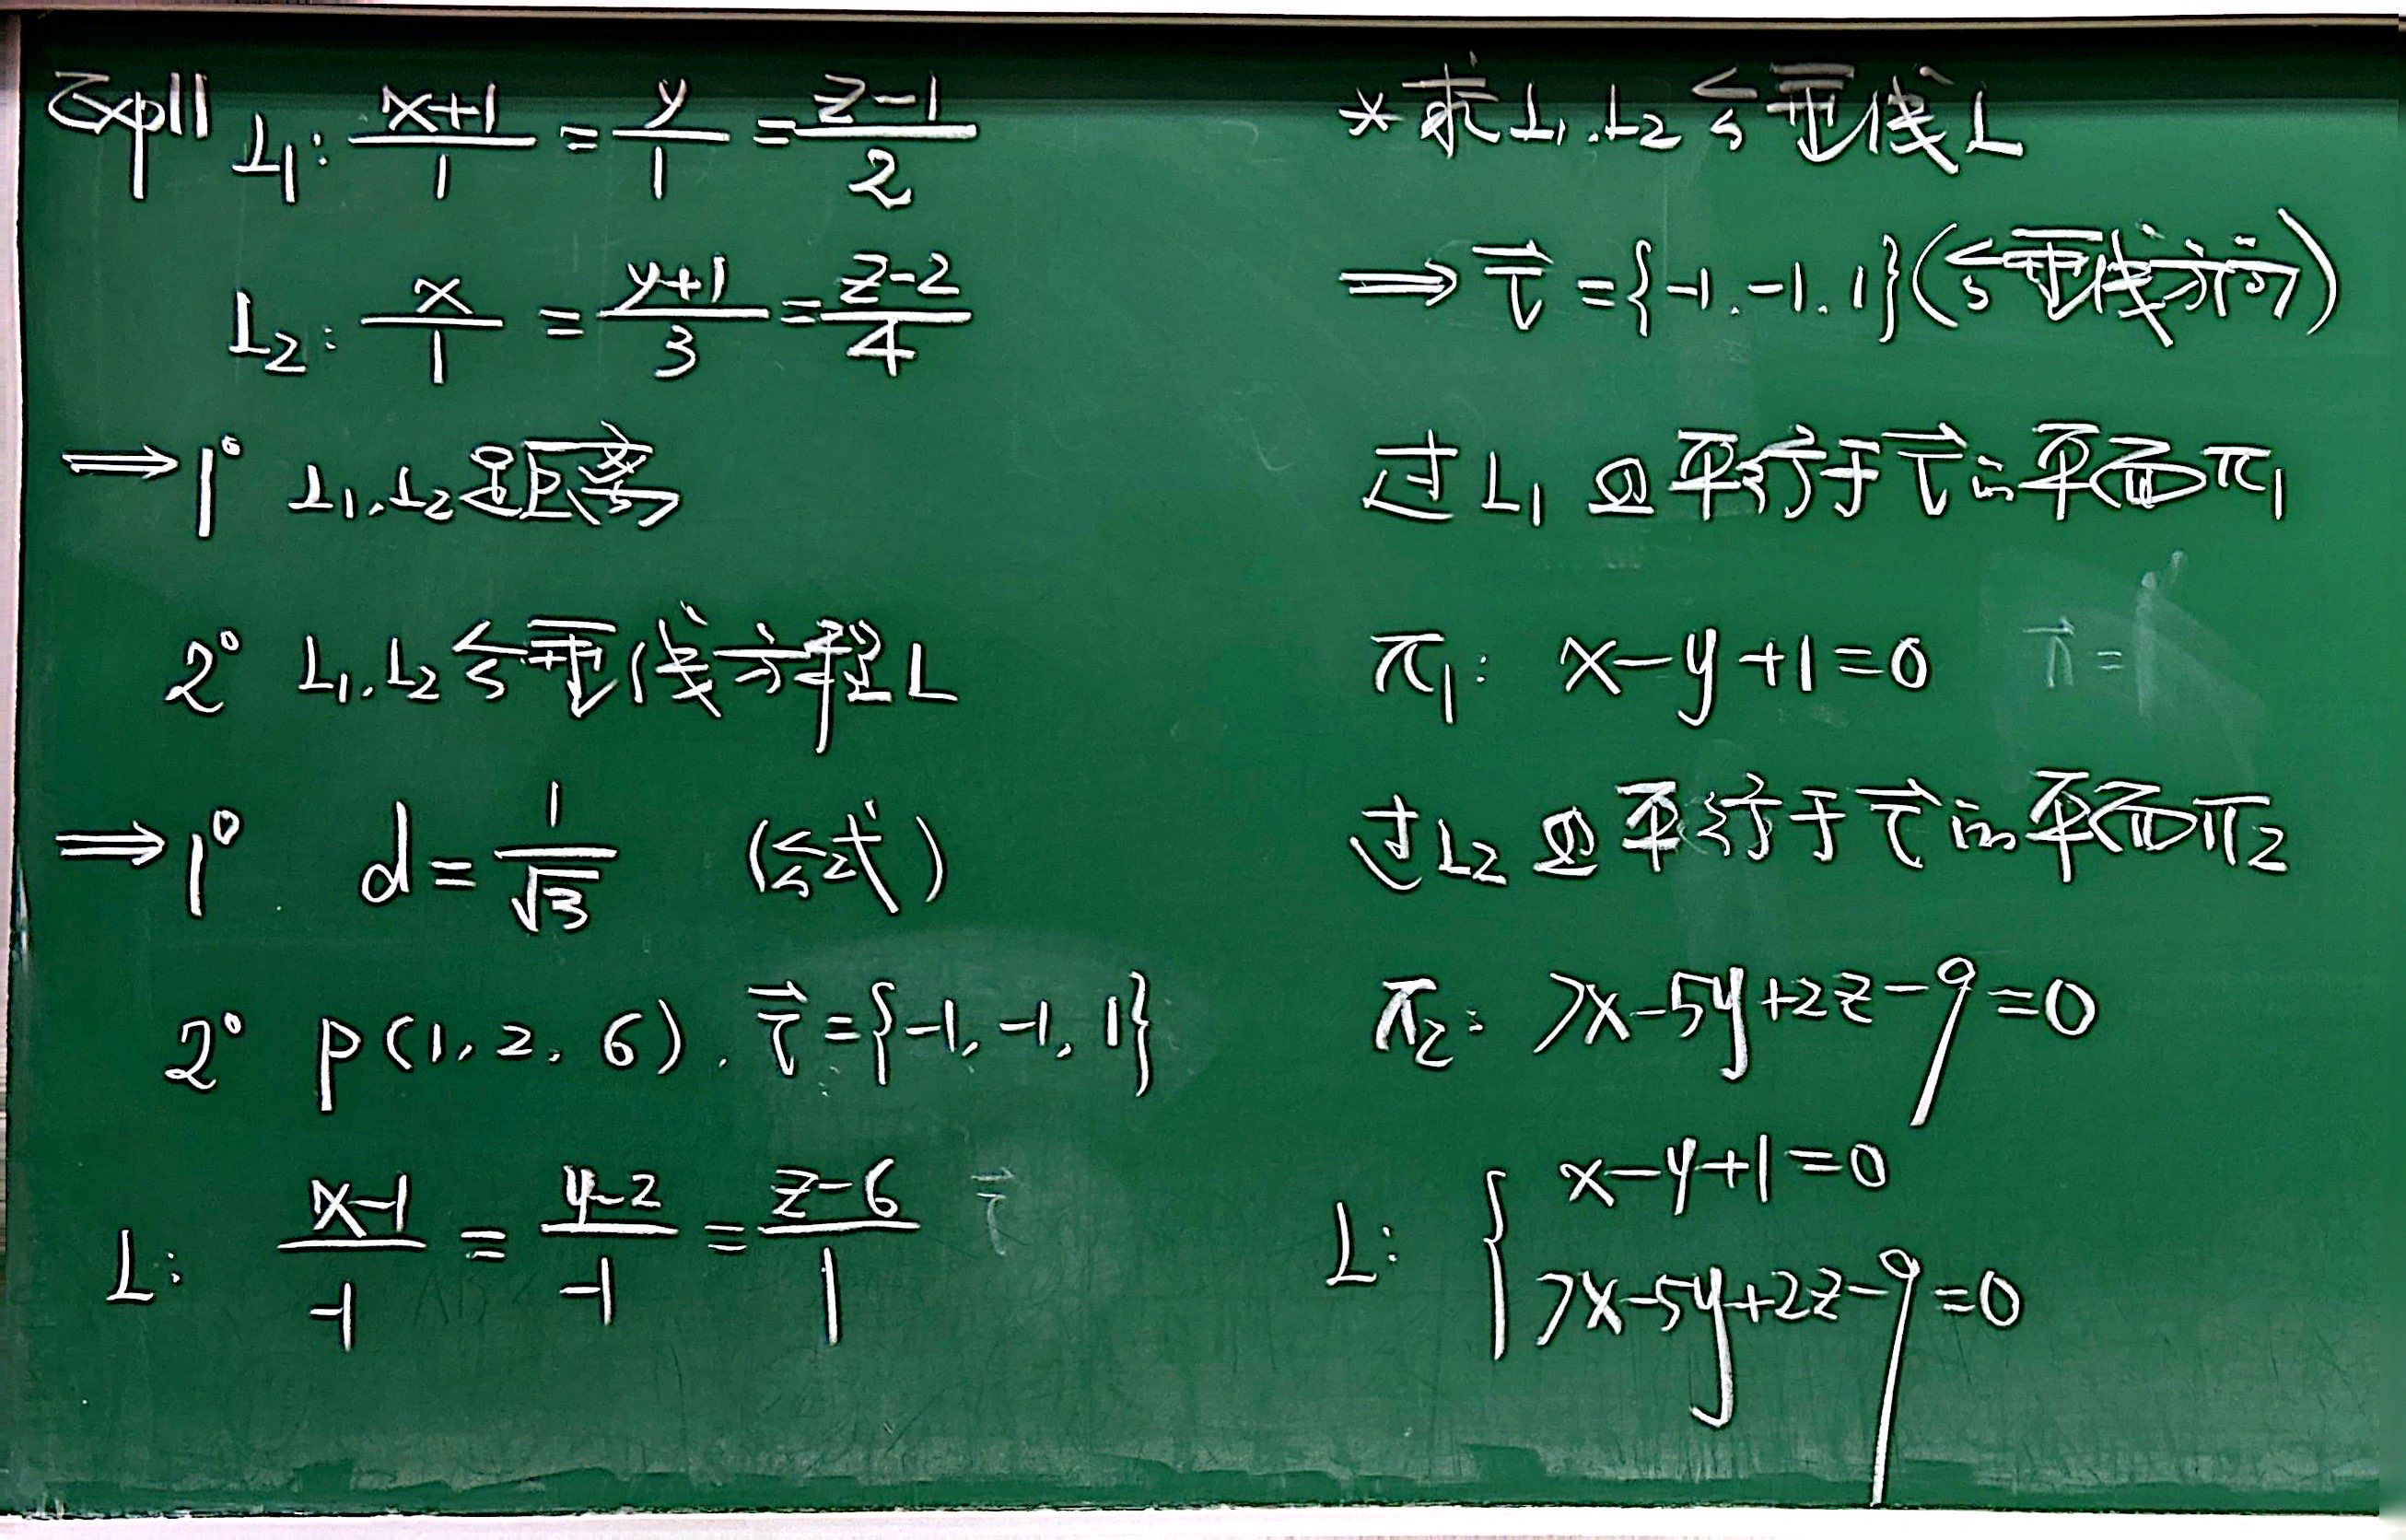 Exp11 L₁: (x+1)/1 = y/1 = (z-1)/2
L₂: x/1 = (y+1)/3 = (z-2)/4
⟹ 1° L₁.L₂距离
2° L₁.L₂公垂线方程L
⟹ 1° d = 1/√3 (公式)
2° p(1.2.6). τ⃗={-1,-1,1}
L: (x-1)/-1 = (y-2)/-1 = (z-6)/1 τ⃗
*求L₁.L₂公垂线L
⟹ τ⃗={-1.-1.1}(公垂线方向)
过L₁且平行于τ⃗in平面π₁
π₁: x-y+1=0 n⃗=
过L₂且平行于τ⃗in平面π₂
π₂: 7x-5y+2z-9=0
L: { x-y+1=0
7x-5y+2z-9=0